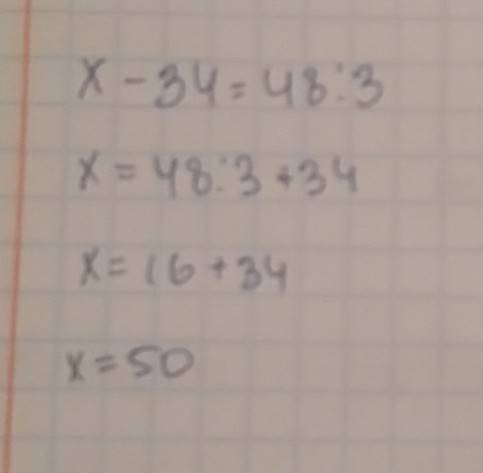 x - 34 = 48 : 3
x = 48 : 3 + 34
x = 16 + 34
x = 50